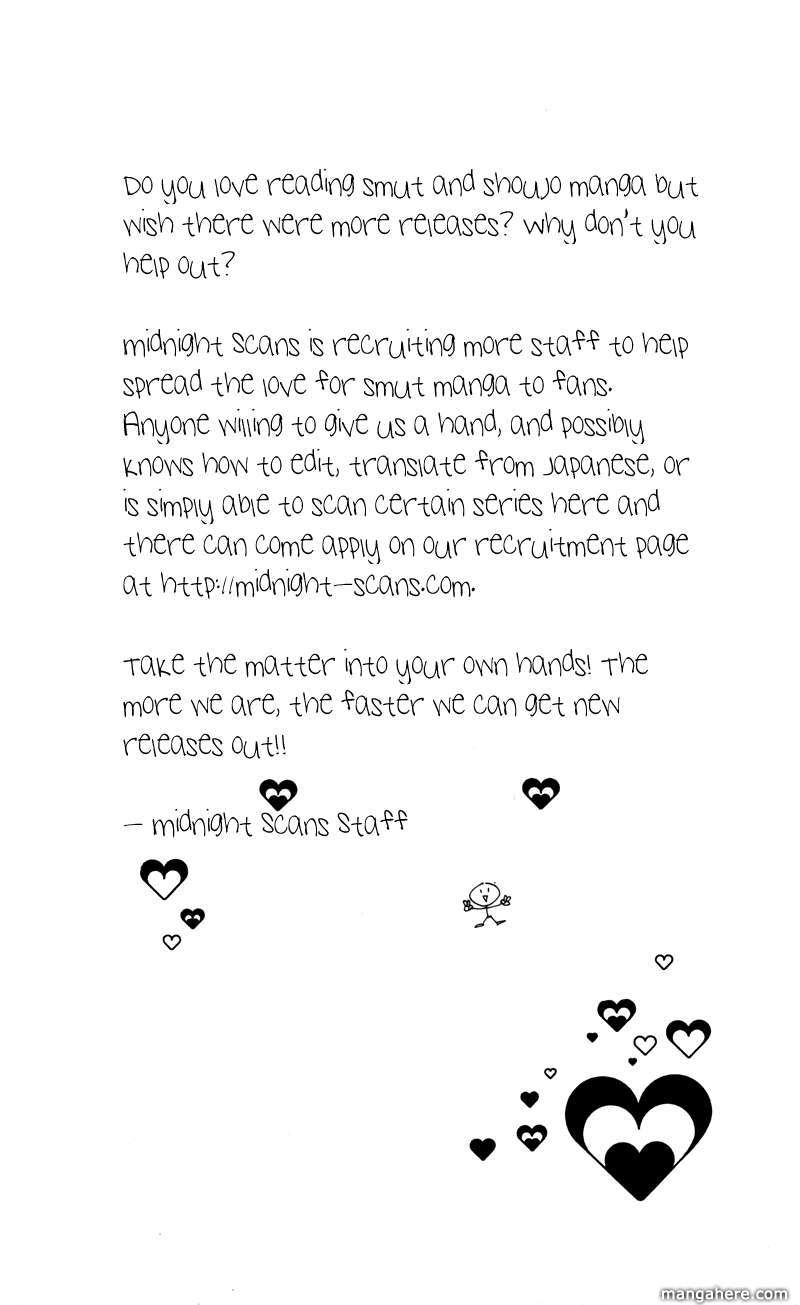 Do you love reading smut and shoujo manga but
wish there were more releases? Why don't you
help out?
Midnight Scans is recruiting more staff to help
spread the love for smut manga to fans.
Anyone willing to give us a hand, and possibly
knows how to edit, translate from Japanese, or
is simply able to scan certain series here and
there can come apply on our recruitment page
at http://midnight-scans.com.
Take the matter into your own hands! The
more we are, the faster we can get new
releases out!!
- Midnight Scans Staff
mangahere.com